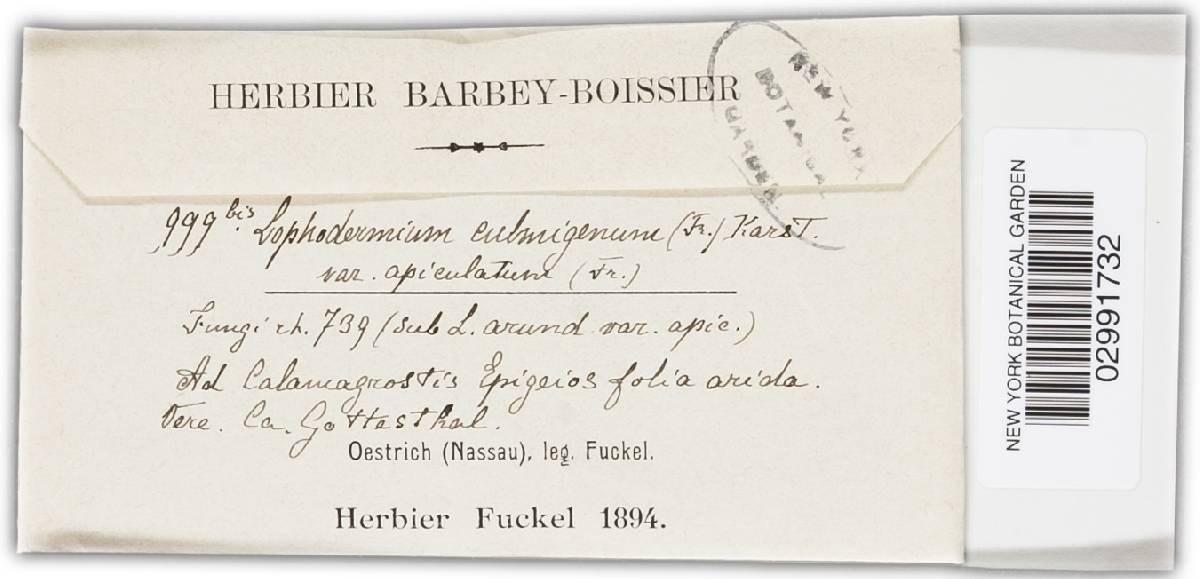 HERBIER BARBEY-BOISSIER
NEW YORK
BOTANICAL
GARDEN
999 bis. Lophodermium culmigenum (Fr.) Karst.
var. apiculatum (Fr.)
Fungi rh. 739 (sub L. arund. var. apic.)
Ad Calamagrostis Epigeios folia arida.
Vere. Ca. Gottesthal.
Oestrich (Nassau), leg. Fuckel.
Herbier Fuckel 1894.
NEW YORK BOTANICAL GARDEN
02991732